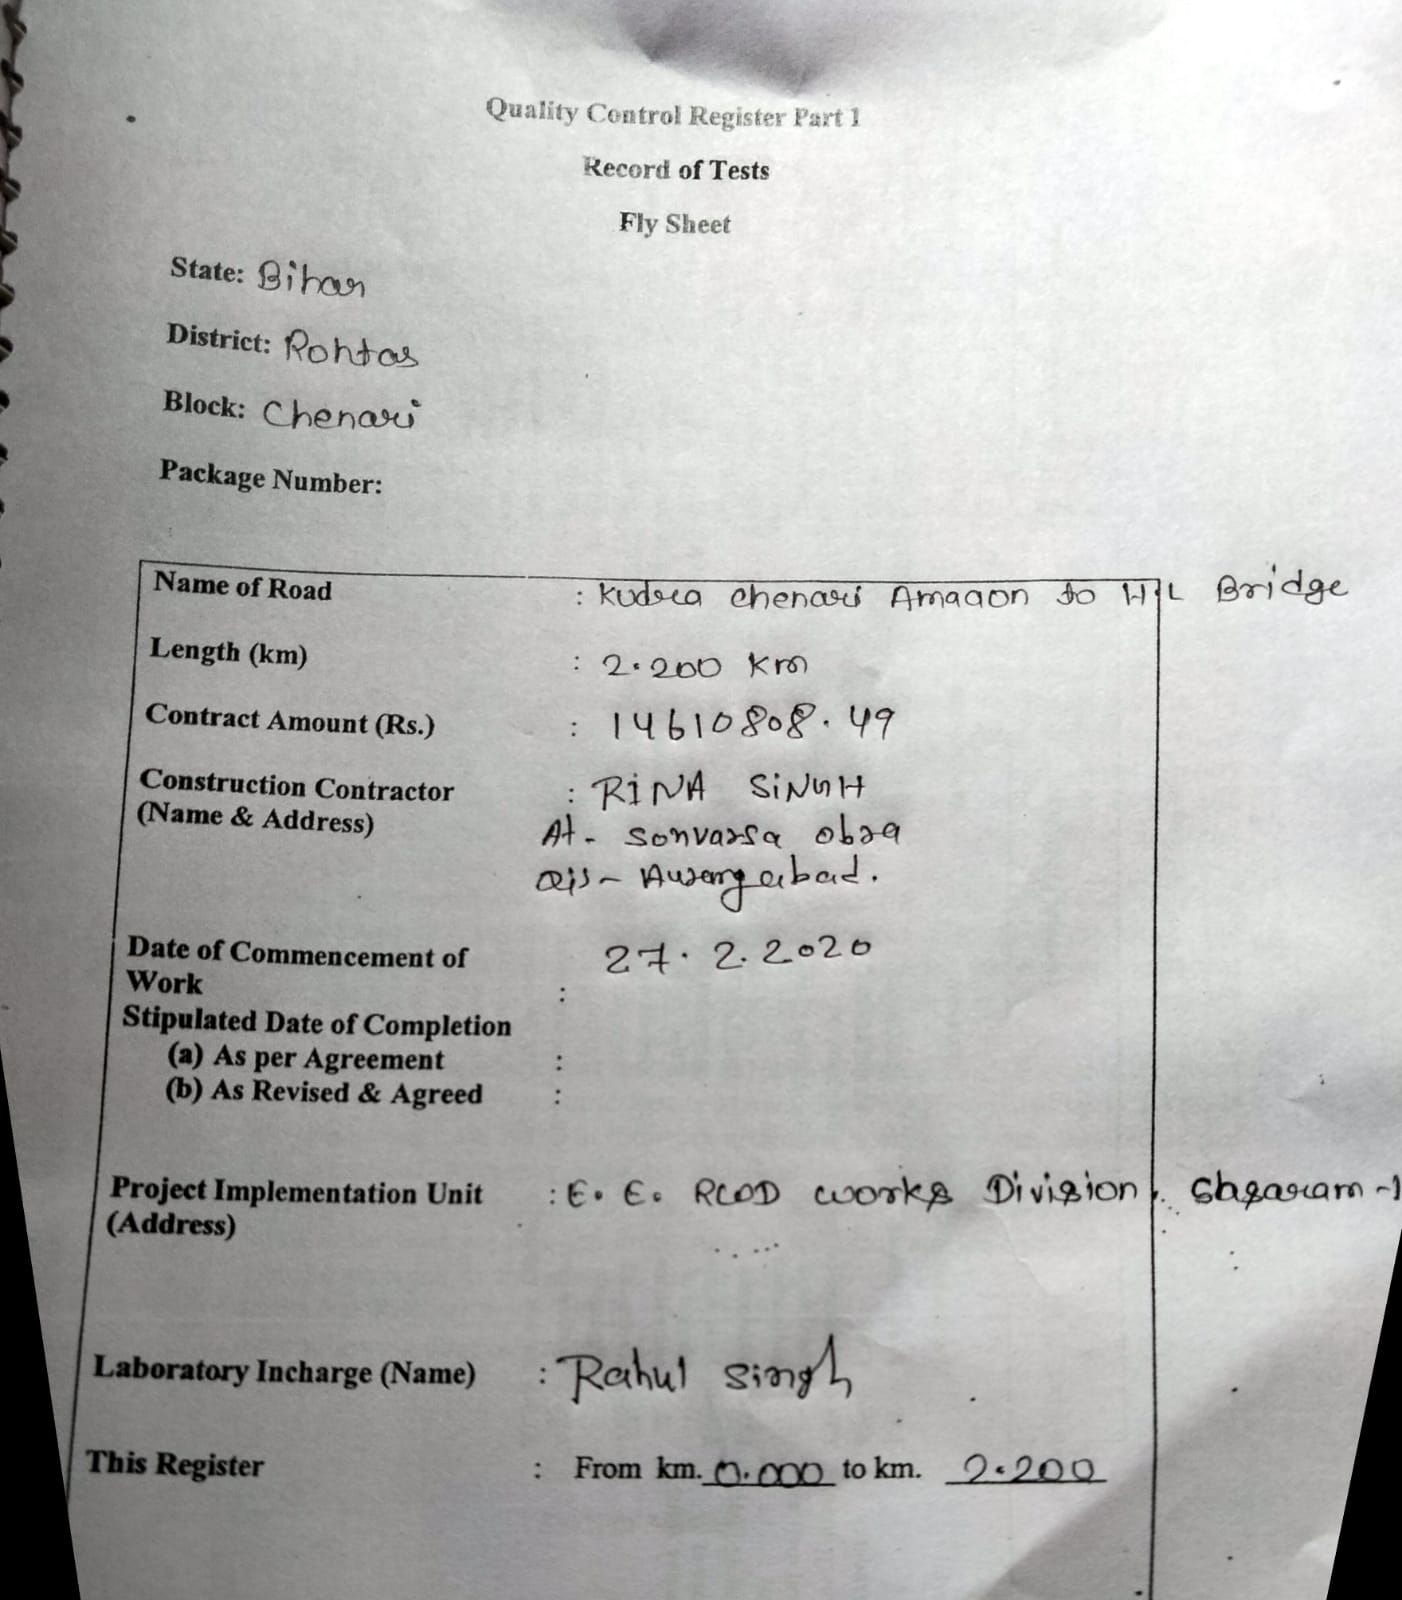 Quality Control Register Part 1
Record of Tests
Fly Sheet
State: Bihar
District: Rohtas
Block: Chenari
Package Number:
Name of Road : Kudra chenari Amaaon to H/L Bridge
Length (km) : 2.200 Km
Contract Amount (Rs.) : 14610808.49
Construction Contractor : RiNA SiNGH
(Name & Address) At - Sonvarsa obra
Dis - Aurangabad.
Date of Commencement of 27.2.2020
Work :
Stipulated Date of Completion
(a) As per Agreement :
(b) As Revised & Agreed :
Project Implementation Unit : E. E. RCD works Division, Shasaram-1
(Address)
Laboratory Incharge (Name) : Rahul Singh
This Register : From km. 0.000 to km. 2.200